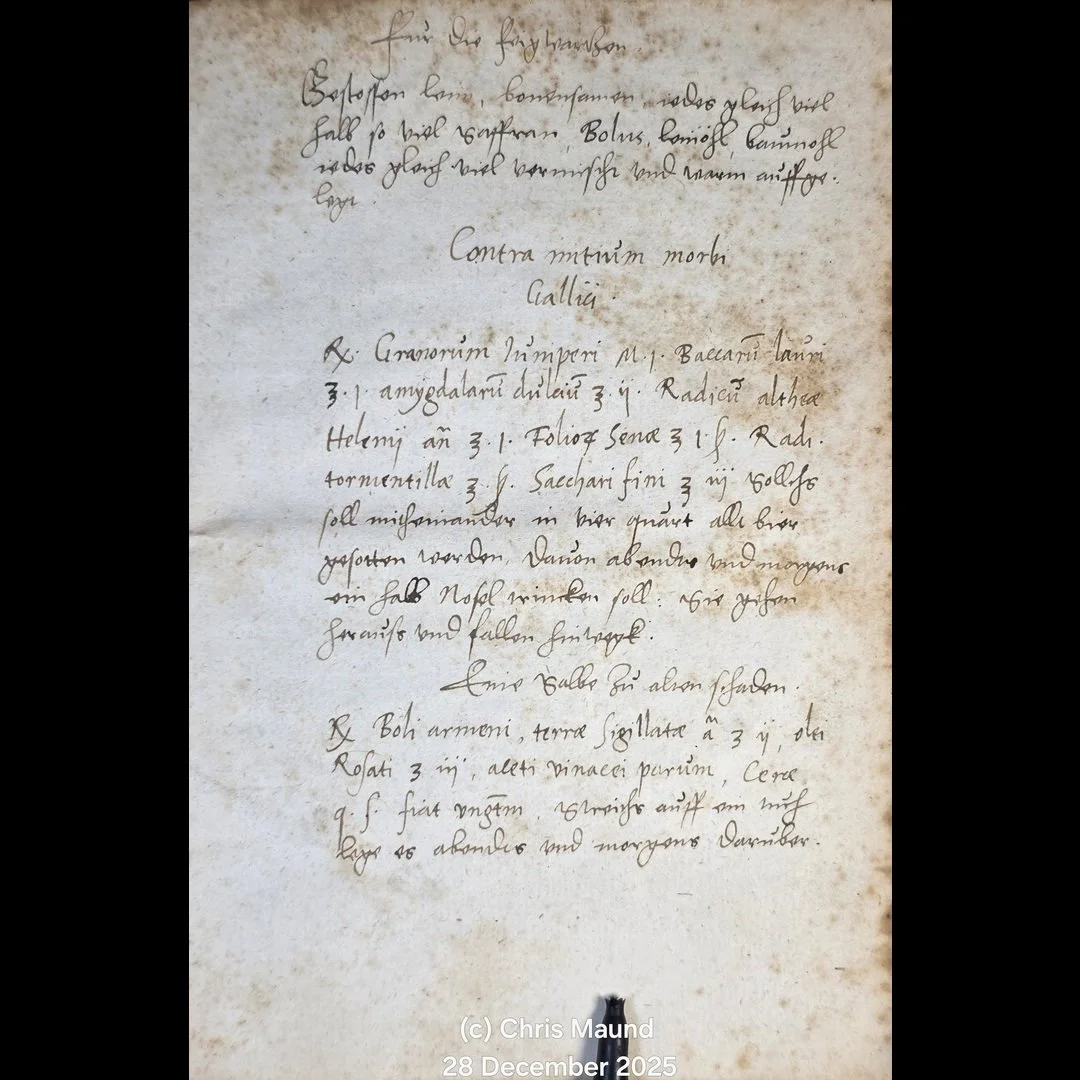 Fur die feigwartzen.
Gestossen lein, bonensamen, iedes gleich viel
halb so viel saffran, Bolus, leinöhl, baumohl
iedes gleich viel vermischt und warm auffge-
legt.
Contra initium morbi
Gallici.
℞. Granorum Iuniperi M. j. Baccarū lauri
ʒ. j. amygdalarū dulciū ʒ. ij. Radicū altheæ
Helenij añ ʒ. j. Folioꝝ Senæ ʒ j ß. Radi.
tormentillæ ʒ. ß. Sacchari fini ʒ iij Sollchs
soll mitheinander in vier quart allt bier
gesotten werden, Davon abendts vnd morgens
ein halb Nosel trincken soll. Sie gehen
herauß vnd fallen hinwegk.
Eine Salbe zu alten schaden.
℞ Boli armeni, terræ sigillatæ ā ʒ ij, olei
Rosati ʒ iij, aceti vinacei parum, Ceræ
q. s. fiat vngtm̄. Streichs auff ein tuch
lege es abendts vnd morgens daruber.
(c) Chris Maund
28 December 2025